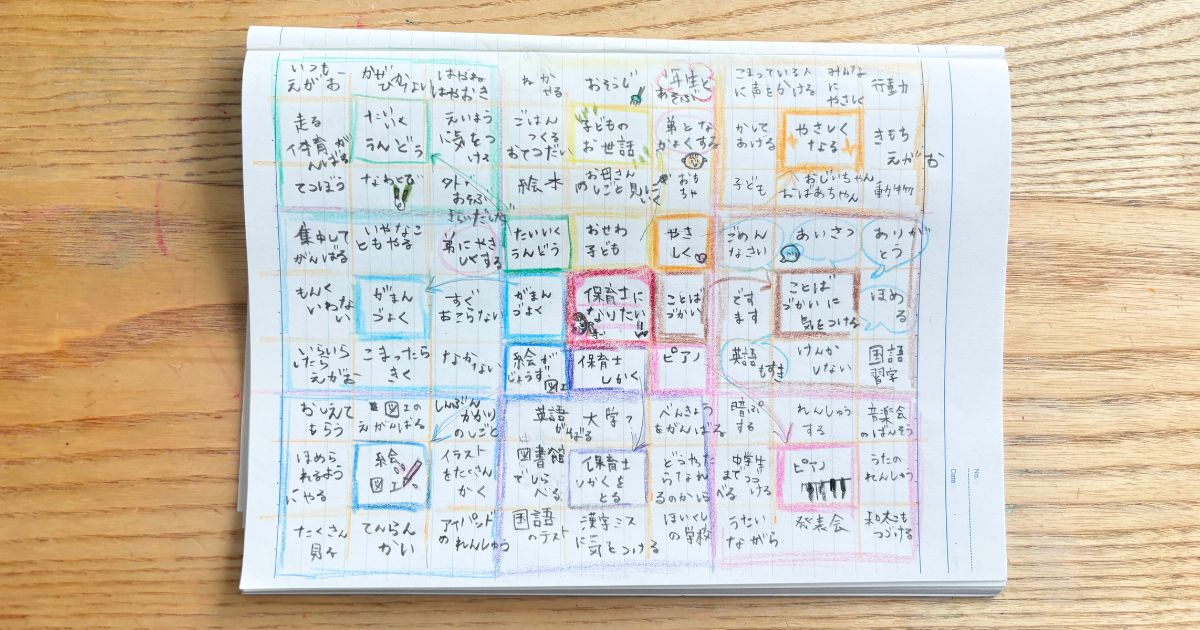 いつも
えがお
かぜ
ひかない
はやね
はやおき
走る
体育が
んばる
たいいく
うんどう
えいよう
に気をつ
ける
てつぼう
なわとび
外で
あそぶ
ねか
せる
おそうじ
1年生と
あそぶ
ごはん
つくる
おてつだい
子どもの
お世話
弟とな
かよくする
絵本
お母さん
のしごと見に
いく
おも
ちゃ
こまっている人
に声をかける
みんな
に
やさしく
行動力
かして
あげる
やさしく
なる
きもち
えがお
子ども
おじいちゃん
おばあちゃん
動物
集中して
がんばる
いやなこ
ともやる
弟にやさ
しくする
もんく
いわな
い
がまん
づよく
すぐ
おこらない
いらいら
したら
えがお
こまったら
きく
なか
ない
たいいく
うんどう
おせわ
子ども
やさ
しく
がまん
づよく
保育士に
なりたい
ことば
づかい
絵が
じょうず
図工
保育士
しかく
ピアノ
ごめん
なさい
あいさつ
ありが
とう
です
ます
ことば
づかいに
気をつける
ほめ
る
英語
もすき
けんか
しない
国語
習字
おしえて
もらう
図工の
えがんばる
しんぶん
かかり
のしごと
ほめら
れるよう
にやる
絵
図工
イラスト
をたくさん
かく
たくさん
見る
てんらん
かい
アイパッド
のれんしゅう
英語
がんばる
大学?
べんきょう
をがんばる
図書館
でしら
べる
保育士
しかくを
とる
どうやった
らなれ
るのかしらべる
国語
のテスト
漢字ミス
に気をつける
ほいくし
の学校
暗ぷ
する
れんしゅう
する
音楽会
のばんそう
中学生
までつづ
ける
ピアノ
うたの
れんしゅう
うたい
ながら
発表会
和太こも
つづける
No.
Date